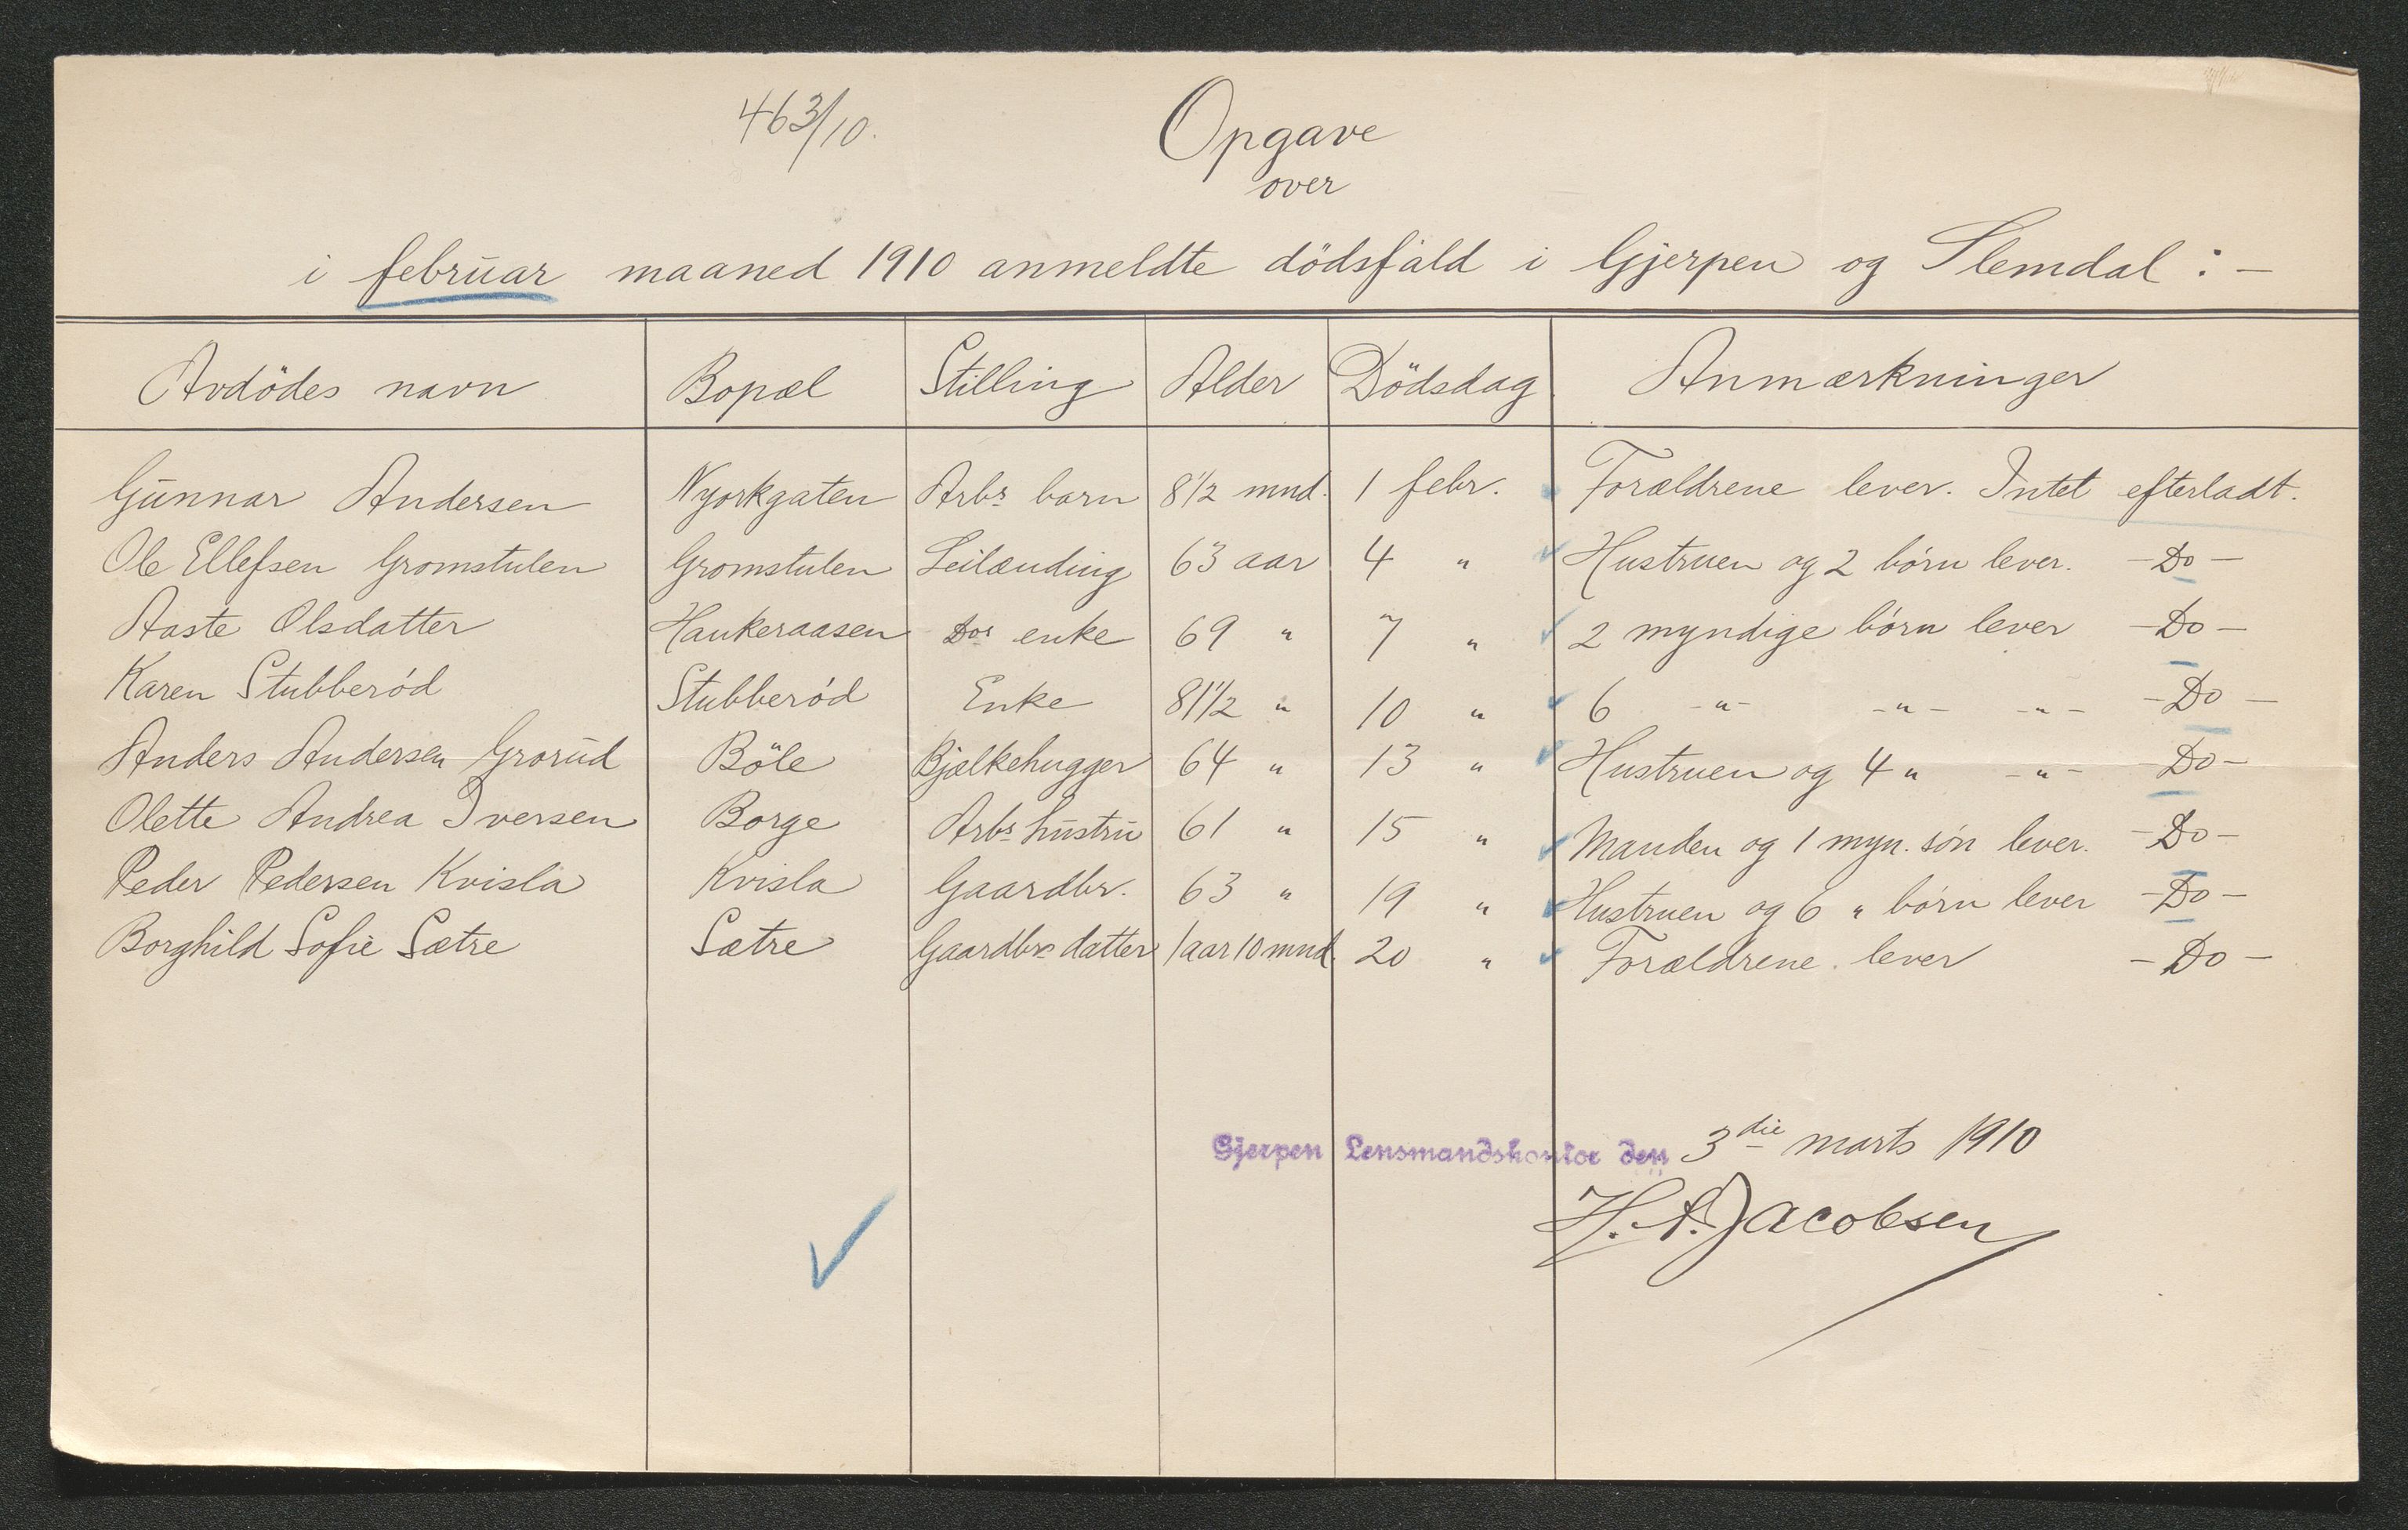 463/10.
Opgave
over
i februar maaned 1910 anmeldte dödsfald i Gjerpen og Slemdal : —
Avdödes navn Bopæl Stilling Alder Dödsdag Anmærkninger
Gunnar Andersen Nyorkgaten Arbs barn 8 1/2 mnd. 1 febr. Forældrene lever. Intet efterladt.
Ole Ellefsen Gromstulen Gromstulen Leilænding 63 aar 4 " Hustruen og 2 börn lever. — Do —
Aaste Olsdatter Haukeraasen Dos enke 69 " 7 " 2 myndige börn lever — Do —
Karen Stubberöd Stubberöd Enke 81 1/2 " 10 " 6 -"- -"- -"- — Do —
Anders Andersen Grorud Böle Bjælkehugger 64 " 13 " Hustruen og 4 " -"- — Do —
Olette Andrea Iversen Borge Arbs hustru 61 " 15 " Manden og 1 myn. sön lever. — Do —
Peder Pedersen Kvisla Kvisla Gaardbr. 63 " 19 " Hustruen og 6 " börn lever — Do —
Borghild Sofie Sætre Sætre Gaardbrs datter 1 aar 10 mnd. 20 " Forældrene lever — Do —
Gjerpen Lensmandskontor den 3die marts 1910
H. A. Jacobsen